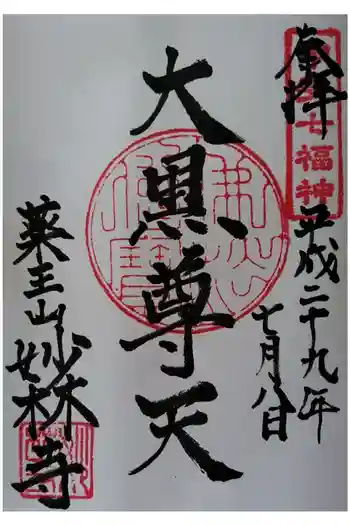 奉拝
七福神
平成二十九年
七月八日
大黒尊天
薬王山妙林寺